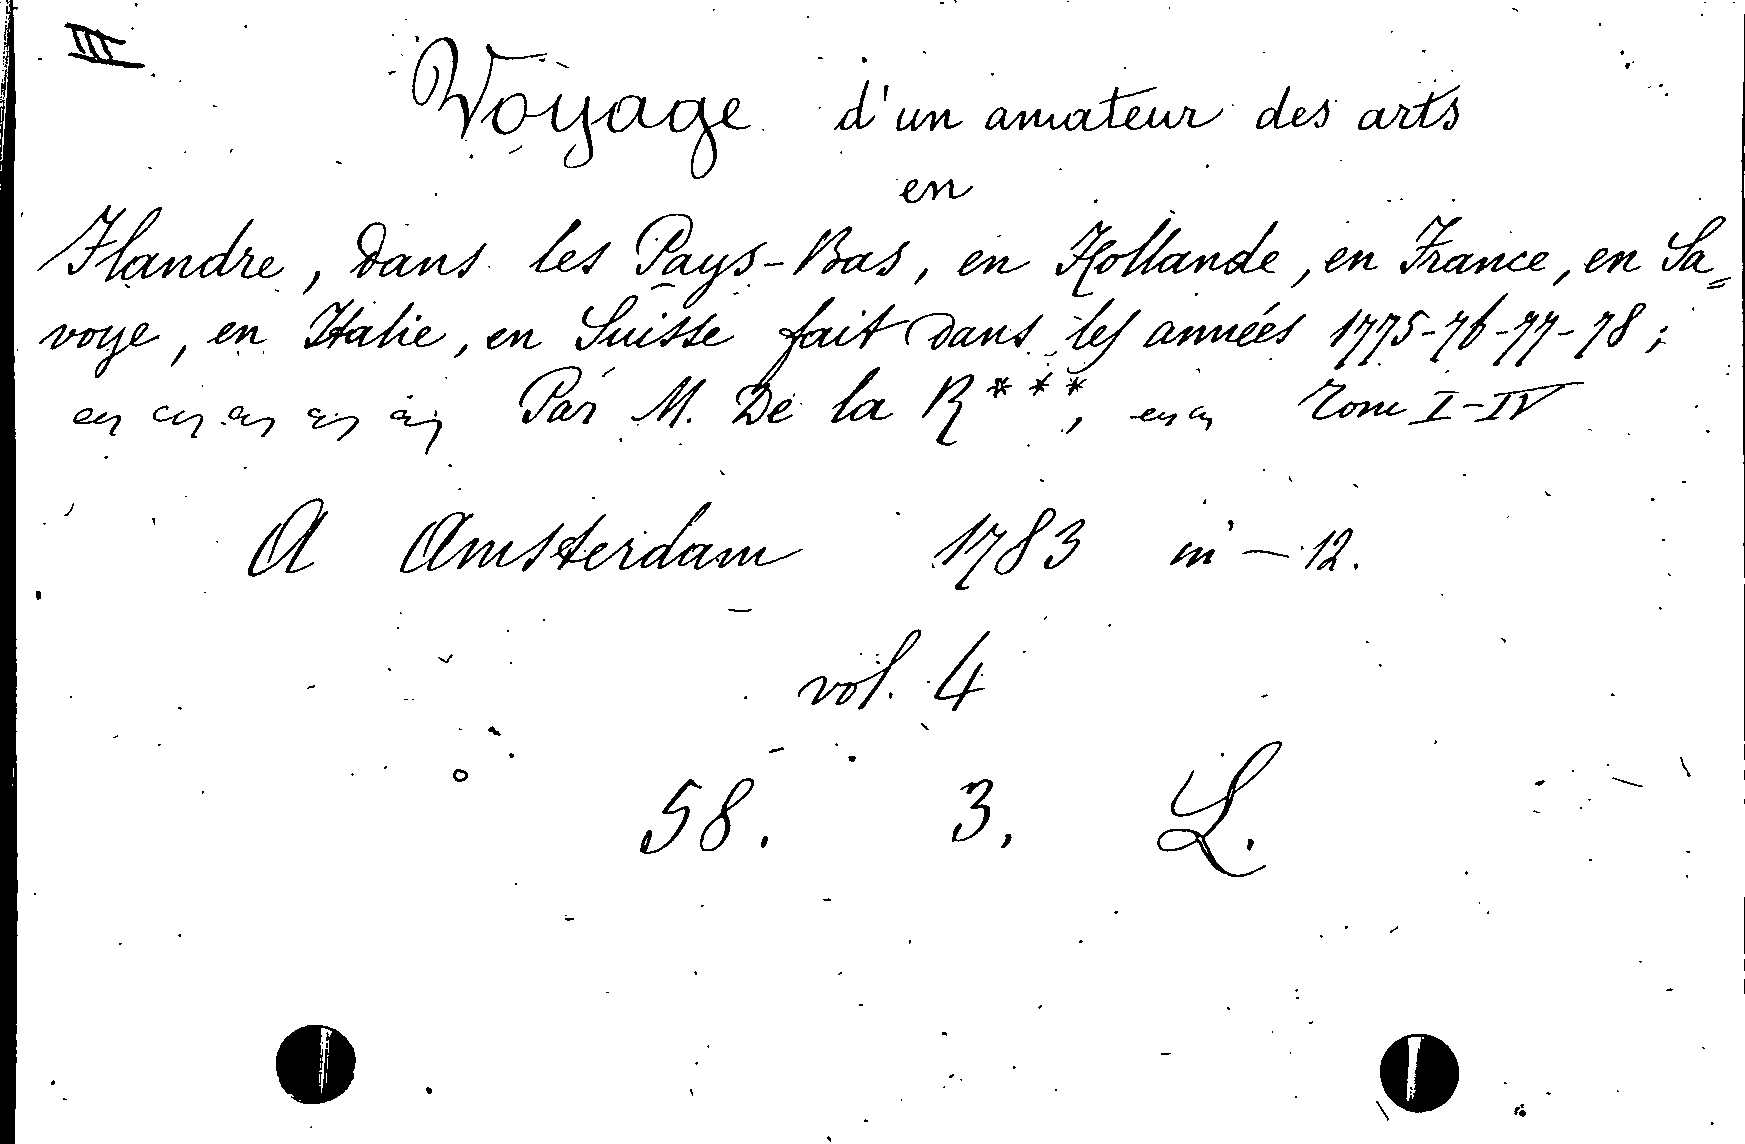 III
Voyage d'un amateur des arts
en
Flandre, dans les Pays-Bas, en Hollande, en France, en Sa=
voye, en Italie, en Suisse fait dans les années 1775-76-77-78;
Par M. De la R***, Tom I-IV
A Amsterdam 1783 in-12.
vol. 4
58. 3. L.